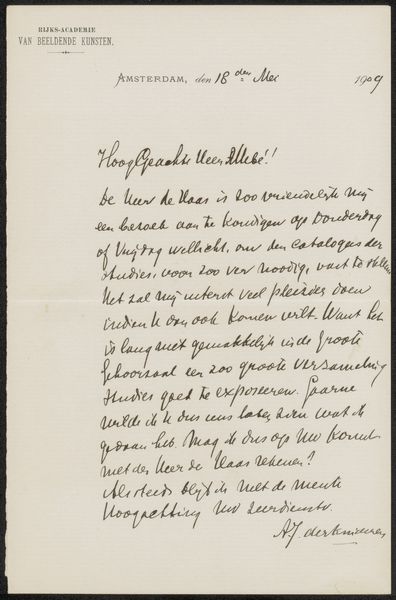 RIJKS-ACADEMIE
VAN BEELDENDE KUNSTEN.
AMSTERDAM, den 18 den Mei 1909
Hoog Geachte Heer Allebé!!
De Heer de Haas is zoo vriendelijk mij
een bezoek aan te kondigen op Donderdag
of Vrijdag wellicht, om den catalogus der
studies, voor zoo ver noodig, vast te stellen
Het zal mij uiterst veel pleizier doen
indien U dan ook komen wilt. Want het
is lang niet gemakkelijk in de groote
gehoorzaal een zoo groote verzameling
studies goed te exposeeren. Gaarne
wilde ik U dus eens laten zien wat ik
gedaan heb. Mag ik dus op Uw komst
met den Heer de Haas rekenen?
Als steeds blijf ik met de meeste
Hoogachting Uw zeer dienstv.
A.J. derKinderen